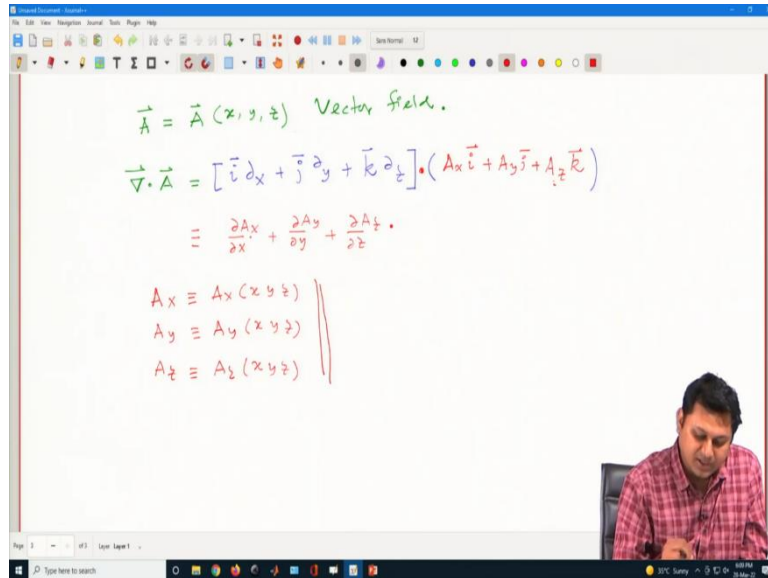 Unsaved Document - Xournal++
File Edit View Navigation Journal Tools Plugin Help
Sans Normal 12
$\vec{A} = \vec{A}(x, y, z)$ Vector field.
$\vec{\nabla} \cdot \vec{A} = [\vec{i} \partial_x + \vec{j} \partial_y + \vec{k} \partial_z] \cdot (A_x \vec{i} + A_y \vec{j} + A_z \vec{k})$
$\equiv \frac{\partial A_x}{\partial x} + \frac{\partial A_y}{\partial y} + \frac{\partial A_z}{\partial z}.$
$A_x \equiv A_x (x y z)$
$A_y \equiv A_y (x y z)$
$A_z \equiv A_z (x y z)$
Page 3 of 3 Layer Layer 1
Type here to search 35°C Sunny 6:09 PM
28-Mar-22